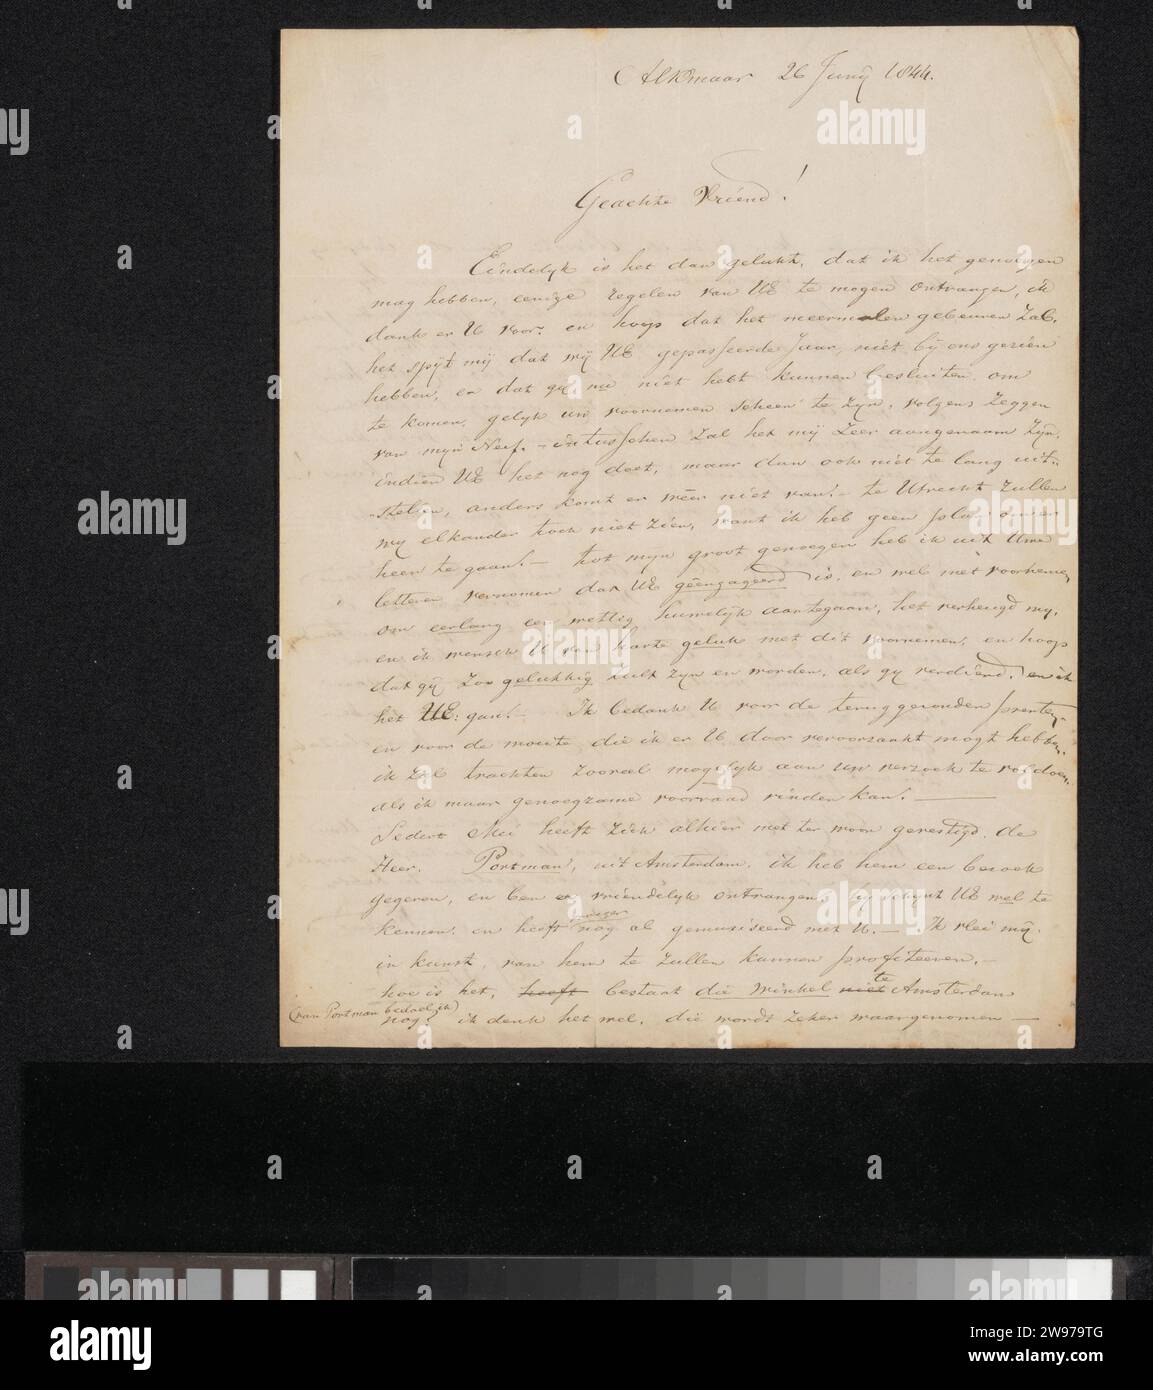 Alkmaar 26 Junij 1844.
Geachte Vriend!
Eindelyk is het dan gelukt, dat ik het genoegen
mag hebben, eenige regelen van UE te mogen ontvangen, ik
dank er U voor. en hoop dat het meermalen gebeuren zal.
het spÿt mÿ dat wÿ UE gepasseerde Jaar, niet bÿ ons gezien
hebben, en dat gÿ niet hebt kunnen besluiten om
te komen, gelyk uw voornemen scheen te zyn, volgens zeggen
van myn Neef. – intusschen zal het mÿ zeer aangenaam zyn,
indien UE het nog doet, maar dan ook niet te lang uit-
stellen, anders komt er wéér niet van! – te Utrecht zullen
wy elkander toch niet zien, want ik heb geen plan om er
heen te gaan! – tot myn groot genoegen heb ik uit Uwe
letteren vernomen dat UE geëngageerd is, en wel met voornemen
om eerlang een wettig huwelyk aantegaan, het verheugd my,
en ik wensch U van harte geluk met dit voornemen, en hoop
dat gÿ zoo gelukkig zult zyn en worden, als gy verdiend, en ik
het UE: gun! – Ik bedank U voor de teruggevonden prenten,
en voor de moeite die ik er U door veroorzaakt mogt hebben.
ik zal trachten zooveel mogelyk aan uw verzoek te voldoen,
als ik maar genoegzame voorraad vinden kan! –
Sedert Mei heeft zich alhier met ter woon gevestigd, de
Heer. Portman, uit Amsterdam, ik heb hem een bezoek
gegeven, en ben er vriendelyk ontvangen, hy schynt UE wel te
kennen, en heeft nog al gemusiseerd met U. – Ik vlei mÿ
vroeger
in kunst, van hem te zullen kunnen profiteeren. –
hoe is het, heeft bestaat die Winkel niet te Amsterdam
(van Portman bedoel ik)
nog? ik denk het wel, die wordt zeker waargenomen –
alamy
Image ID: 2W979TG
www.alamy.com